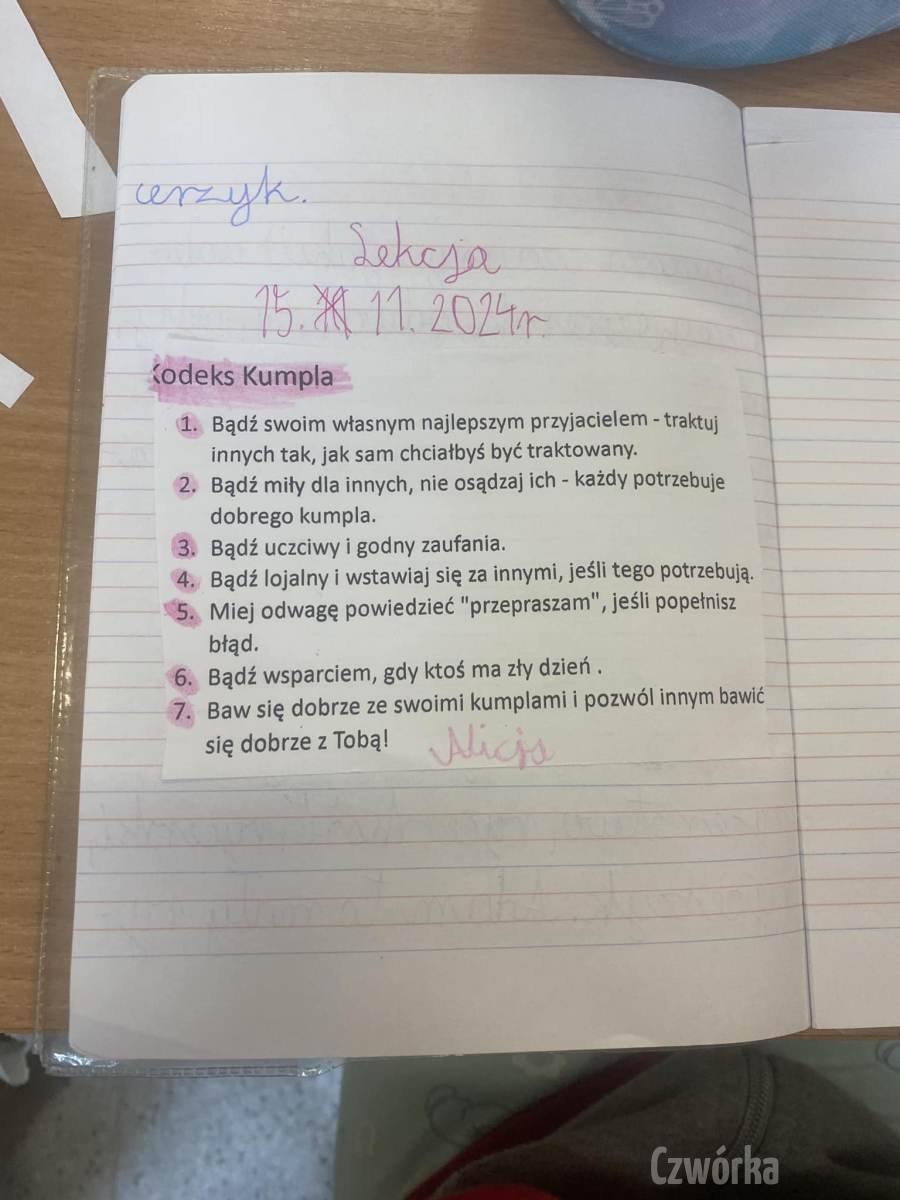 cerzyk.
Lekcja
15. 11. 2024r.
Kodeks Kumpla
1. Bądź swoim własnym najlepszym przyjacielem - traktuj
innych tak, jak sam chciałbyś być traktowany.
2. Bądź miły dla innych, nie osądzaj ich - każdy potrzebuje
dobrego kumpla.
3. Bądź uczciwy i godny zaufania.
4. Bądź lojalny i wstawiaj się za innymi, jeśli tego potrzebują.
5. Miej odwagę powiedzieć "przepraszam", jeśli popełnisz
błąd.
6. Bądź wsparciem, gdy ktoś ma zły dzień .
7. Baw się dobrze ze swoimi kumplami i pozwól innym bawić
się dobrze z Tobą!
Alicja
Czwórka